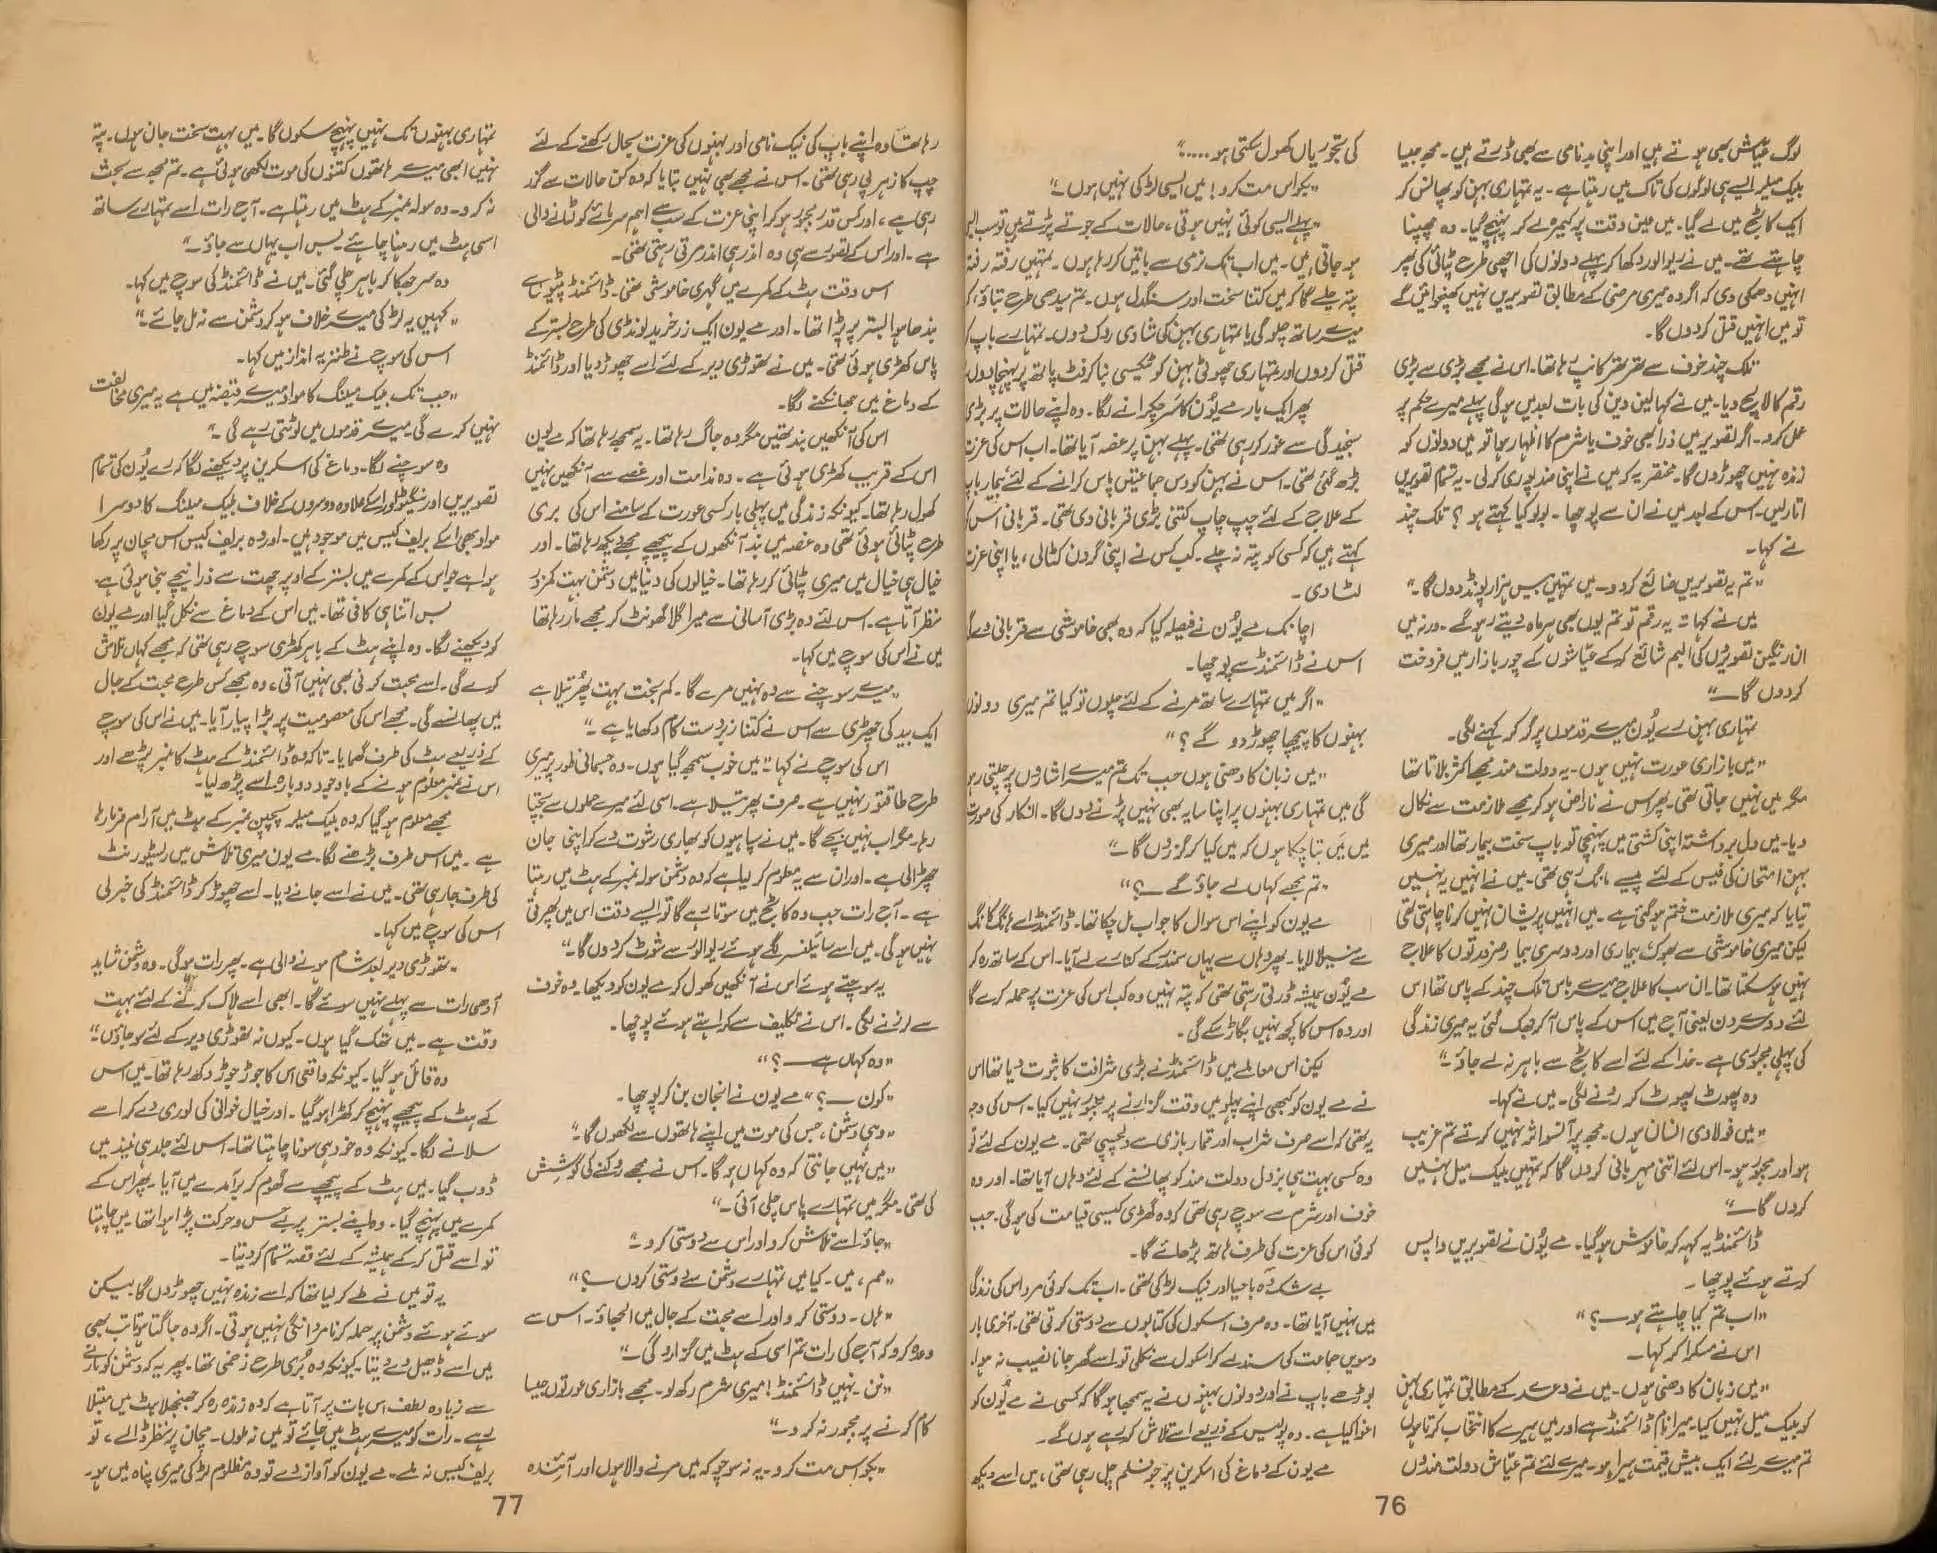 لوگ عیّاش بھی ہوتے ہیں اور اپنی بدنامی سے بھی ڈرتے ہیں۔ مجھ جیسا
بلیک میلر ایسے ہی لوگوں کی تاک میں رہتا ہے۔ یہ تمہاری بہن کو پھانس کر
ایک کاٹج میں لے گیا۔ میں عین وقت پر کیمرہ لے کر پہنچ گیا۔ وہ چھپنا
چاہتے تھے۔ میں نے ریوالور دکھا کر پہلے دونوں کی اچھی طرح پٹائی کی پھر
انہیں دھمکی دی کہ اگر وہ میری مرضی کے مطابق تصویریں نہیں کھنچوائیں گے
تو میں انہیں قتل کر دوں گا۔
تلک چند خوف سے تھر تھر کانپ رہا تھا۔ اس نے مجھے بڑی سے بڑی
رقم کا لالچ دیا۔ میں نے کہا لین دین کی بات بعد میں ہوگی پہلے میرے حکم پر
عمل کرو۔ اگر تصویر میں ذرا بھی خوف یا شرم کا اظہار ہوا تو میں دونوں کو
زندہ نہیں چھوڑوں گا۔ مختصر یہ کہ میں نے اپنی ضد پوری کر لی۔ یہ تمام تصویریں
اتار لیں۔ اس کے بعد میں نے ان سے پوچھا۔ بولو کیا کہتے ہو؟ تلک چند
نے کہا۔
"تم یہ تصویریں ضائع کر دو۔ میں تمہیں بیس ہزار پونڈ دوں گا۔"
میں نے کہا "یہ رقم تو تم یوں بھی ہر ماہ دیتے رہو گے۔ ورنہ میں
ان رنگین تصویروں کی البم شائع کر کے عیّاشوں کے چور بازار میں فروخت
کر دوں گا۔"
تمہاری بہن رے یُون میرے قدموں پر گر کر کہنے لگی۔
"میں بازاری عورت نہیں ہوں۔ یہ دولت مند مجھے اکثر بلاتا تھا
مگر میں نہیں جاتی تھی۔ پھر اس نے ناراض ہو کر مجھے ملازمت سے نکال
دیا۔ میں دل برداشتہ اپنی کشتی میں پہنچی تو باپ سخت بیمار تھا اور میری
بہن امتحان کی فیس کے لئے پیسے مانگ رہی تھی۔ میں نے انہیں یہ نہیں
بتایا کہ میری ملازمت ختم ہو گئی ہے۔ میں انہیں پریشان نہیں کرنا چاہتی تھی
لیکن میری خاموشی سے بھوک، بیماری اور دوسری بیمار ضرورتوں کا علاج
نہیں ہو سکتا تھا۔ ان سب کا علاج میرے باس تلک چند کے پاس تھا اس
لئے دوسرے دن یعنی آج میں اس کے پاس آ کر جھک گئی یہ میری زندگی
کی پہلی مجبوری ہے۔ خدا کے لئے اسے کاٹج سے باہر نہ لے جاؤ۔"
وہ پھوٹ پھوٹ کر رونے لگی۔ میں نے کہا۔
"میں فولادی انسان ہوں۔ مجھ پر آنسو اثر نہیں کرتے تم غریب
ہو اور مجبور ہو۔ اس لئے اتنی مہربانی کروں گا کہ تمہیں بلیک میل نہیں
کروں گا۔"
ڈائمنڈ یہ کہہ کر خاموش ہو گیا۔ مے یُون نے تصویریں واپس
کرتے ہوئے پوچھا۔
"اب تم کیا چاہتے ہو۔؟"
اس نے مسکرا کر کہا۔
"میں زبان کا دھنی ہوں۔ میں نے وعدے کے مطابق تمہاری بہن
کو بلیک میل نہیں کیا۔ میرا نام ڈائمنڈ ہے اور میں ہیرے کا انتخاب کرتا ہوں
تم میرے لئے ایک بیش قیمت ہیرا ہو۔ میرے لئے تم عیاش دولت مندوں
کی تجوریاں کھول سکتی ہو....."
"بکواس مت کرو! میں ایسی لڑکی نہیں ہوں۔"
"پہلے ایسی کوئی نہیں ہوتی، حالات کے جوتے پڑتے ہیں تو سب
ہو جاتی ہیں۔ میں اب تک نرمی سے باتیں کر رہا ہوں۔ تمہیں رفتہ رفتہ
پتہ چلے گا کہ میں کتنا سخت اور سنگدل ہوں۔ تم سیدھی طرح بتاؤ
میرے ساتھ چلو گی یا تمہاری بہن کی شادی روک دوں۔ تمہارے باپ
قتل کر دوں اور تمہاری چھوٹی بہن کو ٹیکسی بنا کر فٹ پاتھ پر پہنچا دوں
پھر ایک بار مے یُون کا سر چکرانے لگا۔ وہ اپنے حالات پر بڑی
سنجیدگی سے غور کر رہی تھی۔ پہلے بہن پر غصہ آیا تھا۔ اب اس کی عزت
بڑھ گئی تھی۔ اس نے بہن کو دس جماعتیں پاس کرانے کے لئے بیمار باپ
کے علاج کے لئے چپ چاپ کتنی بڑی قربانی دی تھی۔ قربانی اس
کہتے ہیں کہ کسی کو پتہ نہ چلے۔ کب کس نے اپنی گردن کٹالی، یا اپنی عزت
لٹا دی۔
اچانک مے یُون نے فیصلہ کیا کہ وہ بھی خاموشی سے قربانی دے
اس نے ڈائمنڈ سے پوچھا۔
"اگر میں تمہارے ساتھ مرنے کے لئے چلوں تو کیا تم میری دونوں
بہنوں کا پیچھا چھوڑ دو گے؟"
"میں زبان کا دھنی ہوں جب تک تم میرے اشاروں پر چلتی رہو
گی میں تمہاری بہنوں پر اپنا سایہ بھی نہیں پڑنے دوں گا۔ انکار کی صورت
میں مَیں بتا چکا ہوں کہ میں کیا کر گزروں گا۔"
"تم مجھے کہاں لے جاؤ گے۔؟"
مے یون کو اپنے اس سوال کا جواب مل چکا تھا۔ ڈائمنڈ اسے ہانگ کانگ
سے منیلا لایا۔ پھر وہاں سے یہاں سمندر کے کنارے لے آیا۔ اس کے ساتھ رہ کر
مے یُون ہمیشہ ڈرتی رہتی تھی کہ پتہ نہیں وہ کب اس کی عزت پر حملہ کرے گا
اور وہ اس کا کچھ نہیں بگاڑ سکے گی۔
لیکن اس معاملے میں ڈائمنڈ نے بڑی شرافت کا ثبوت دیا تھا اس
نے مے یون کو کبھی اپنے پہلو میں وقت گزارنے پر مجبور نہیں کیا۔ اس کی وجہ
یہ تھی کہ اسے صرف شراب اور قمار بازی سے دلچسپی تھی۔ مے یون کے لئے تو
وہ کسی بہت ہی بزدل دولت مند کو پھانسنے کے لئے وہاں آیا تھا۔ اور وہ
خوف اور شرم سے سوچ رہی تھی کہ وہ گھڑی کیسی قیامت کی ہوگی۔ جب
کوئی اس کی عزت کی طرف ہاتھ بڑھائے گا۔
بے شک وہ باحیا اور نیک لڑکی تھی۔ اب تک کوئی مرد اس کی زندگی
میں نہیں آیا تھا۔ وہ صرف اسکول کی کتابوں سے دوستی کرتی تھی۔ آخری بار
دسویں جماعت کی سند لے کر اسکول سے نکلی تو اسے گھر جانا نصیب نہ ہوا۔
بوڑھے باپ نے اور دونوں بہنوں نے یہ سمجھا ہو گا کہ کسی نے مے یُون کو
اغوا کیا ہے۔ وہ پولیس کے ذریعے اسے تلاش کر رہے ہوں گے۔
مے یون کے دماغ کی اسکرین پر جو فلم چل رہی تھی، میں اسے دیکھ
76
رہا تھا وہ اپنے باپ کی نیک نامی اور بہنوں کی عزت بحال رکھنے کے لئے
چپ کا زہر پی رہی تھی۔ اس نے مجھے بھی نہیں بتایا کہ وہ کن حالات سے گزر
رہی ہے، اور کس قدر مجبور ہو کر اپنی عزت کے سب سے اہم سرمائے کو لٹانے والی
ہے۔ اور اس کے تصور سے ہی وہ اندر ہی اندر مرتی رہتی تھی۔
اس وقت ہٹ کے کمرے میں گہری خاموشی تھی۔ ڈائمنڈ پٹیوں سے
بندھا ہوا بستر پر پڑا تھا۔ اور مے یون ایک زرخرید لونڈی کی طرح بستر کے
پاس کھڑی ہوئی تھی۔ میں نے تھوڑی دیر کے لئے اسے چھوڑ دیا اور ڈائمنڈ
کے دماغ میں جھانکنے لگا۔
اس کی آنکھیں بند تھیں مگر وہ جاگ رہا تھا۔ یہ سمجھ رہا تھا کہ مے یون
اس کے قریب کھڑی ہوئی ہے۔ وہ ندامت اور غصے سے آنکھیں نہیں
کھول رہا تھا۔ کیونکہ زندگی میں پہلی بار کسی عورت کے سامنے اس کی بری
طرح پٹائی ہوئی تھی وہ غصہ میں بند آنکھوں کے پیچھے مجھے دیکھ رہا تھا۔ اور
خیال ہی خیال میں میری پٹائی کر رہا تھا۔ خیالوں کی دنیا میں دشمن بہت کمزور
نظر آتا ہے۔ اس لئے وہ بڑی آسانی سے میرا گلا گھونٹ کر مجھے مار رہا تھا
میں نے اس کی سوچ میں کہا۔
"میرے سوچنے سے وہ نہیں مرے گا۔ کم بخت بہت پھُرتیلا ہے
ایک بید کی چھڑی سے اس نے کتنا زبردست کام دکھایا ہے۔"
اس کی سوچ نے کہا "میں خوب سمجھ گیا ہوں۔ وہ جسمانی طور پر میری
طرح طاقتور نہیں ہے۔ صرف پھرتیلا ہے۔ اسی لئے میرے حملوں سے بچتا
رہا۔ مگر اب نہیں بچے گا۔ میں نے سپاہیوں کو بھاری رشوت دے کر اپنی جان
چھڑالی ہے۔ اور ان سے یہ معلوم کر لیا ہے کہ وہ دشمن سولہ نمبر کے ہٹ میں رہتا
ہے۔ آج رات جب وہ کاٹج میں سوتا رہے گا تو ایسے وقت اس میں پھرتی
نہیں ہوگی۔ میں اسے سائیلنسر لگے ہوئے ریوالور سے شوٹ کر دوں گا۔"
یہ سوچتے ہوئے اس نے آنکھیں کھول کر مے یون کو دیکھا۔ وہ خوف
سے لرزنے لگی۔ اس نے تکلیف سے کراہتے ہوئے پوچھا۔
"وہ کہاں ہے۔؟"
"کون۔؟" مے یون نے انجان بن کر پوچھا۔
"وہی دشمن، جس کی موت میں اپنے ہاتھوں سے لکھوں گا۔"
"میں نہیں جانتی کہ وہ کہاں ہو گا۔ اس نے مجھے روکنے کی کوشش
کی تھی۔ مگر میں تمہارے پاس چلی آئی۔"
"جاؤ اسے تلاش کرو اور اس سے دوستی کرو۔"
"مم، میں۔ کیا میں تمہارے دشمن سے دوستی کروں؟"
"ہاں۔ دوستی کرو اور اسے محبت کے جال میں الجھاؤ۔ اس سے
وعدہ کرو کہ آج کی رات تم اسی کے ہٹ میں گزارو گی۔"
"نن۔ نہیں ڈائمنڈ! میری شرم رکھ لو۔ مجھے بازاری عورتوں جیسا
کام کرنے پر مجبور نہ کرو۔"
"بکواس مت کرو۔ یہ نہ سوچو کہ میں مرنے والا ہوں اور آئندہ
تمہاری بہنوں تک نہیں پہنچ سکوں گا۔ میں بہت سخت جان ہوں۔ پتہ
نہیں ابھی میرے ہاتھوں کتنوں کی موت لکھی ہوئی ہے۔ تم مجھ سے بحث
نہ کرو۔ وہ سولہ نمبر کے ہٹ میں رہتا ہے۔ آج رات اسے تمہارے ساتھ
اسی ہٹ میں رہنا چاہئے۔ بس اب یہاں سے جاؤ۔"
وہ سر جھکا کر باہر چلی گئی۔ میں نے ڈائمنڈ کی سوچ میں کہا۔
"کہیں یہ لڑکی میرے خلاف ہو کر دشمن سے نہ مل جائے۔"
اس کی سوچ نے طنزیہ انداز میں کہا۔
"جب تک بلیک میلنگ کا مواد میرے قبضہ میں ہے یہ میری مخالفت
نہیں کرے گی۔ میرے قدموں میں لوٹتی رہے گی۔"
وہ سوچنے لگا۔ دماغ کی اسکرین پر دیکھنے لگا کہ رے یُون کی تمام
تصویریں اور نیگیٹو اور اسکے علاوہ دوسروں کے خلاف بلیک میلنگ کا دوسرا
مواد بھی اسکے بریف کیس میں موجود ہیں۔ اور وہ بریف کیس اس مچان پر رکھا
ہوا ہے جو اس کے کمرے میں بستر کے اوپر چھت سے ذرا نیچے بنی ہوئی ہے
بس اتنا ہی کافی تھا۔ میں اس کے دماغ سے نکل گیا اور مے یون
کو دیکھنے لگا۔ وہ اپنے ہٹ کے باہر کھڑی سوچ رہی تھی کہ مجھے کہاں تلاش
کرے گی۔ اسے محبت کرنی بھی نہیں آتی، وہ مجھے کس طرح محبت کے جال
میں پھانسے گی۔ مجھے اس کی معصومیت پر بڑا پیار آیا۔ میں نے اس کی سوچ
کے ذریعے ہٹ کی طرف گھمایا۔ تاکہ وہ ڈائمنڈ کے ہٹ کا نمبر پڑھے اور
اس نے نمبر معلوم ہونے کے باوجود دوبارہ اسے پڑھ لیا۔
مجھے معلوم ہو گیا کہ وہ بلیک میلر پچپن نمبر کے ہٹ میں آرام فرما رہا
ہے۔ میں اس طرف بڑھنے لگا۔ مے یون میری تلاش میں ریسٹورنٹ
کی طرف جا رہی تھی۔ میں نے اسے جانے دیا۔ اسے چھوڑ کر ڈائمنڈ کی خبر لی
اس کی سوچ میں کہا۔
"تھوڑی دیر بعد شام ہونے والی ہے۔ پھر رات ہوگی۔ وہ دشمن شاید
آدھی رات سے پہلے نہیں سوئے گا۔ ابھی اسے ہلاک کرنے کے لئے بہت
وقت ہے۔ میں تھک گیا ہوں۔ کیوں نہ تھوڑی دیر کے لئے سو جاؤں۔"
وہ قائل ہو گیا۔ کیونکہ واقعی اس کا جوڑ جوڑ دکھ رہا تھا۔ میں اس
کے ہٹ کے پیچھے پہنچ کر کھڑا ہو گیا۔ اور خیال خوانی کی لوری دے کر اسے
سلانے لگا۔ کیونکہ وہ خود ہی سونا چاہتا تھا۔ اس لئے جلد ہی نیند میں
ڈوب گیا۔ میں ہٹ کے پیچھے سے گھوم کر برآمدے میں آیا۔ پھر اس کے
کمرے میں پہنچ گیا۔ وہ اپنے بستر پر بے حس و حرکت پڑا ہوا تھا۔ میں چاہتا
تو اسے قتل کر کے ہمیشہ کے لئے قصہ تمام کر دیتا۔
یہ تو میں نے طے کر لیا تھا کہ اسے زندہ نہیں چھوڑوں گا۔ لیکن
سوئے ہوئے دشمن پر حملہ کرنا مردانگی نہیں ہوتی۔ اگر وہ جاگتا ہوتا تب بھی
میں اسے ڈھیل دے دیتا۔ کیونکہ وہ بُری طرح زخمی تھا۔ پھر یہ کہ دشمن کو مارنے
سے زیادہ لطف اس بات پر آتا ہے کہ وہ زندہ رہ کر جھنجھلاہٹ میں مبتلا
رہے۔ رات کو میرے ہٹ میں جائے تو میں نہ ملوں۔ مچان پر نظر ڈالے، تو
بریف کیس نہ ملے۔ مے یون کو آواز دے تو وہ مظلوم لڑکی میری پناہ میں ہو۔
77